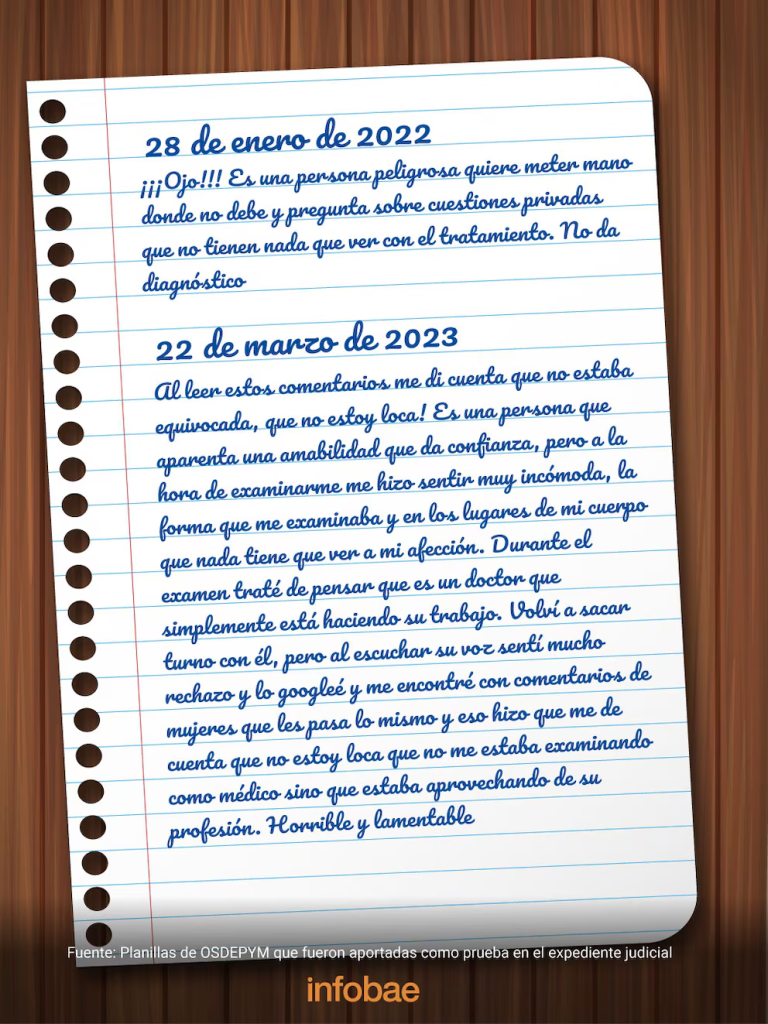 28 de enero de 2022
¡¡¡Ojo!!! Es una persona peligrosa quiere meter mano
donde no debe y pregunta sobre cuestiones privadas
que no tienen nada que ver con el tratamiento. No da
diagnóstico
22 de marzo de 2023
Al leer estos comentarios me di cuenta que no estaba
equivocada, que no estoy loca! Es una persona que
aparenta una amabilidad que da confianza, pero a la
hora de examinarme me hizo sentir muy incómoda, la
forma que me examinaba y en los lugares de mi cuerpo
que nada tiene que ver a mi afección. Durante el
examen traté de pensar que es un doctor que
simplemente está haciendo su trabajo. Volví a sacar
turno con él, pero al escuchar su voz sentí mucho
rechazo y lo googleé y me encontré con comentarios de
mujeres que les pasa lo mismo y eso hizo que me de
cuenta que no estoy loca que no me estaba examinando
como médico sino que estaba aprovechando de su
profesión. Horrible y lamentable
Fuente: Planillas de OSDEPYM que fueron aportadas como prueba en el expediente judicial
infobae